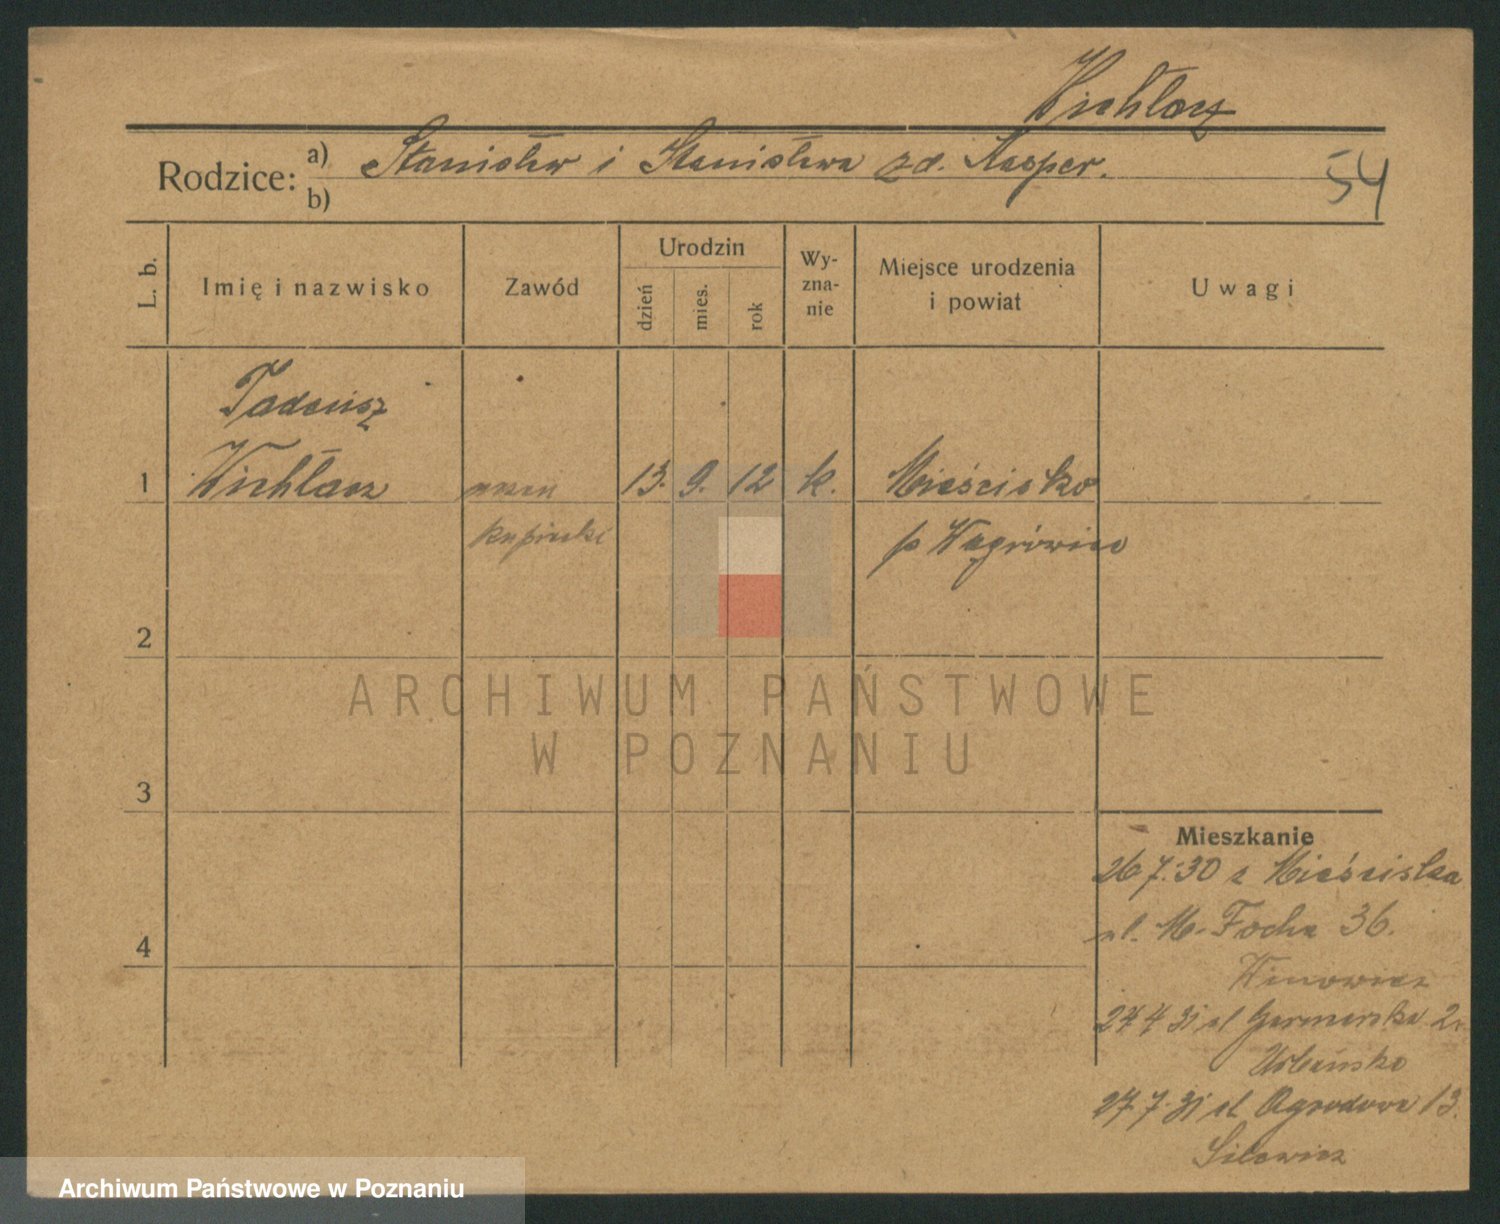 Wichłacz
Rodzice: a) Stanisław i Stanisława zd. Kasper.
b)
54
L. b.
Imię i nazwisko
Zawód
Urodzin
dzień
mies.
rok
Wy-
zna-
nie
Miejsce urodzenia
i powiat
Uwagi
Tadeusz
1 Wichłacz uczeń 13. 9. 12 k. Mieścisko
kupiecki p Wągrowiec
2
3
4
Mieszkanie
26 7.30 z Mieściska
ul. M. Focha 36.
27 4 31 ul Garncarska 2
Urbańska
27.7.31 ul Ogrodowa 13.
ARCHIWUM PAŃSTWOWE
W POZNANIU
Archiwum Państwowe w Poznaniu